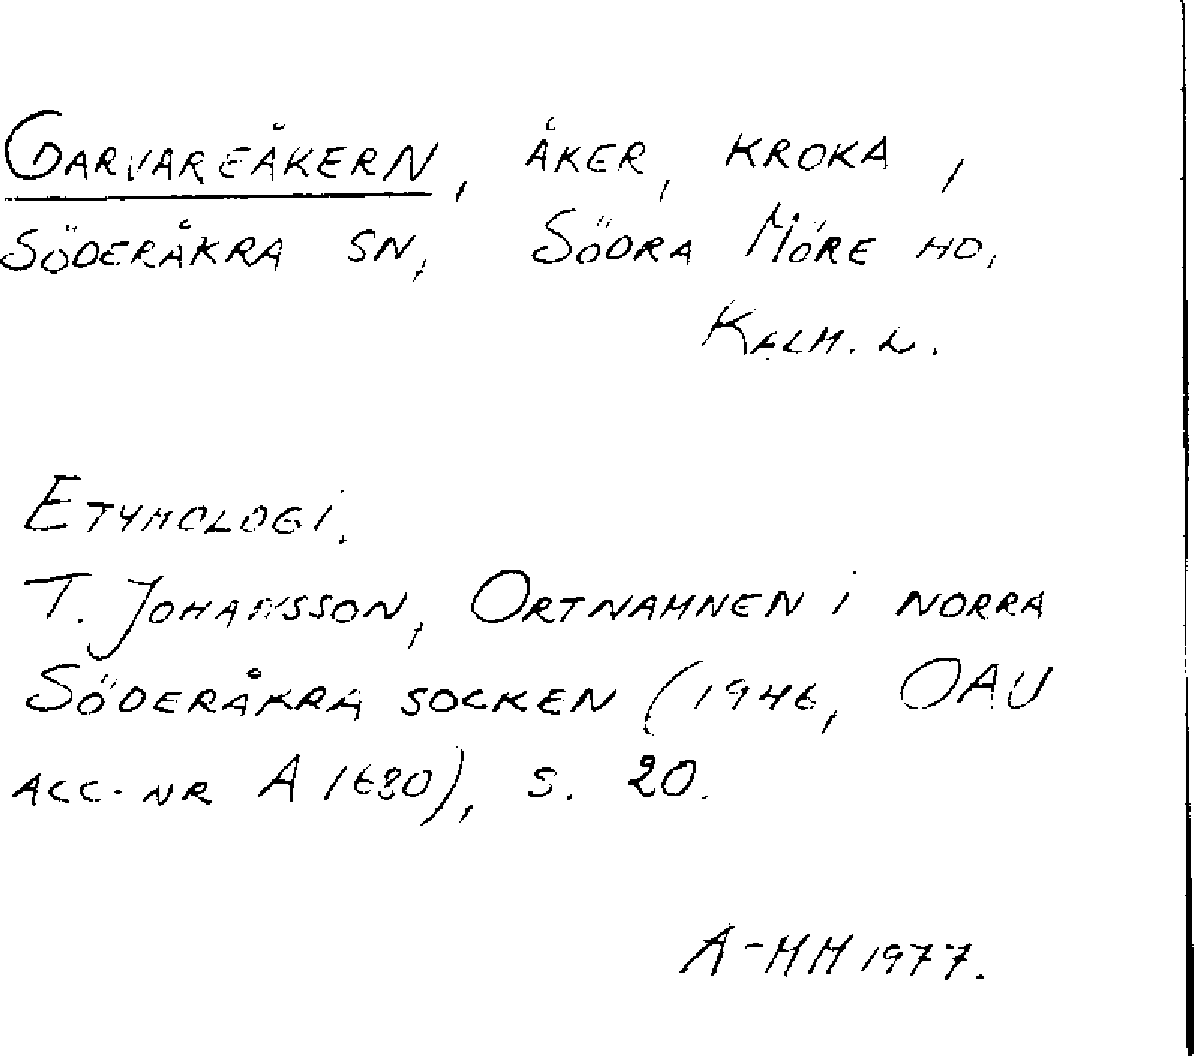 GARVAREÅKERN, ÅKER, KROKA,
SÖDERÅKRA SN, SÖDRA MÖRE HD,
KALM. L.
ETYMOLOGI.
T. JOHANSSON, ORTNAMNEN I NORRA
SÖDERÅKRA SOCKEN (1946, OAU
ACC-NR A 1680), S. 20.
A-MM 1977.